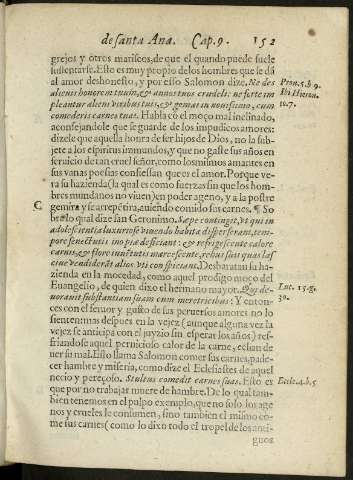 de santa Ana. Cap. 9. 152
grejos y otros mariscos, de que el quando puede suele
sustentarse. Esto es muy propio de los hombres que se dã
al amor deshonesto, y por esso Salomon dize. Ne des
alienis honorem tuum, & annos tuos crudeli: ne forte im
pleantur alieni viribus tuis, & gemas in nouissimo, cum
comederis carnes tuas. Habla cõ el moço mal inclinado,
aconsejandole que se guarde de los impudicos amores:
dizele que aquella honra de ser hijos de Dios, no la sub-
jete a los espiritus immundos, y que no gaste sus años en
seruicio de tan cruel señor, como los mismos amantes en
sus vanas poesias confiessan que es el amor. Porque ve-
ra su hazienda (la qual es como fuerzas sin que los hom-
bres mundanos no viuen) en poder ageno, y a la postre
gemira y se arrepẽtira, auiendo comido sus carnes. ¶ So
bre lo qual dize san Geronimo. Sæpe contingit, vt qui in
adolescentia luxuriosè viuendo habita disperserant, tem-
pore senectutis inopia deficiant: & refrigescente calore
carnis, & flore iuuẽtutis marcescente, rebus suis quas las
ciue
Desbaratau su ha-
zienda en la mocedad, como aquel prodigo moço del
Euangelio, de quien dixo el hermano mayor. Qui de-
uorauit substantiam suam cum meretricibus: Y enton-
ces con el feruor y gusto de sus peruersos amores no lo
sentent mas despues en la vejez (aunque alguna vez la
vejez se anticipa con el juyzio sin esperar los años) res-
friandose aquel pernicioso calor de la carne, echan de
ver su mal. Esto llama Salomon comer sus carnes, pade-
cer hambre y miseria, como dize el Ecclesiastes de aquel
necio y pereçoso. Stultus comedit carnes suas. Esto es
que por no trabajar muere de hambre. De lo qual tam-
bien tenemos en el pulpo exemplo, que no solo los age
nos y crueles le consumen, sino tambien el mismo co-
me sus carnes (como lo dixo todo el tropel de los anti-
guos
Prou. 5. b 9.
Ibi Hieron.
to. 7.
C
Luc. 15. g.
30.
Eccle. 4. b. 5